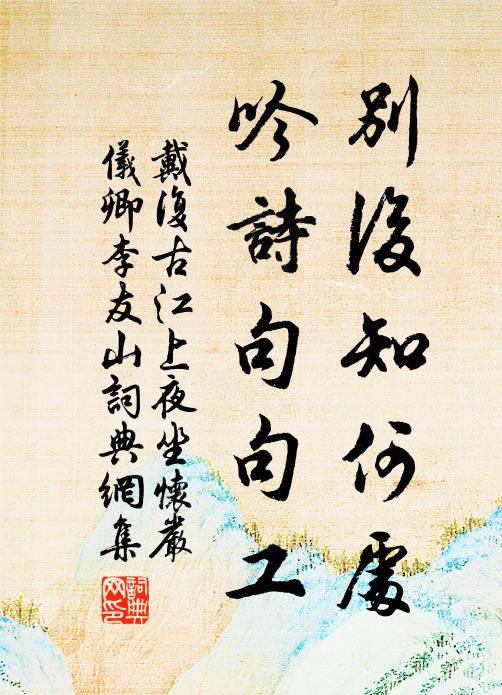 別後知何處
吟詩句句工
戴復古江上夜坐懷嚴
儀卿李友山詞典網集
詞典網印